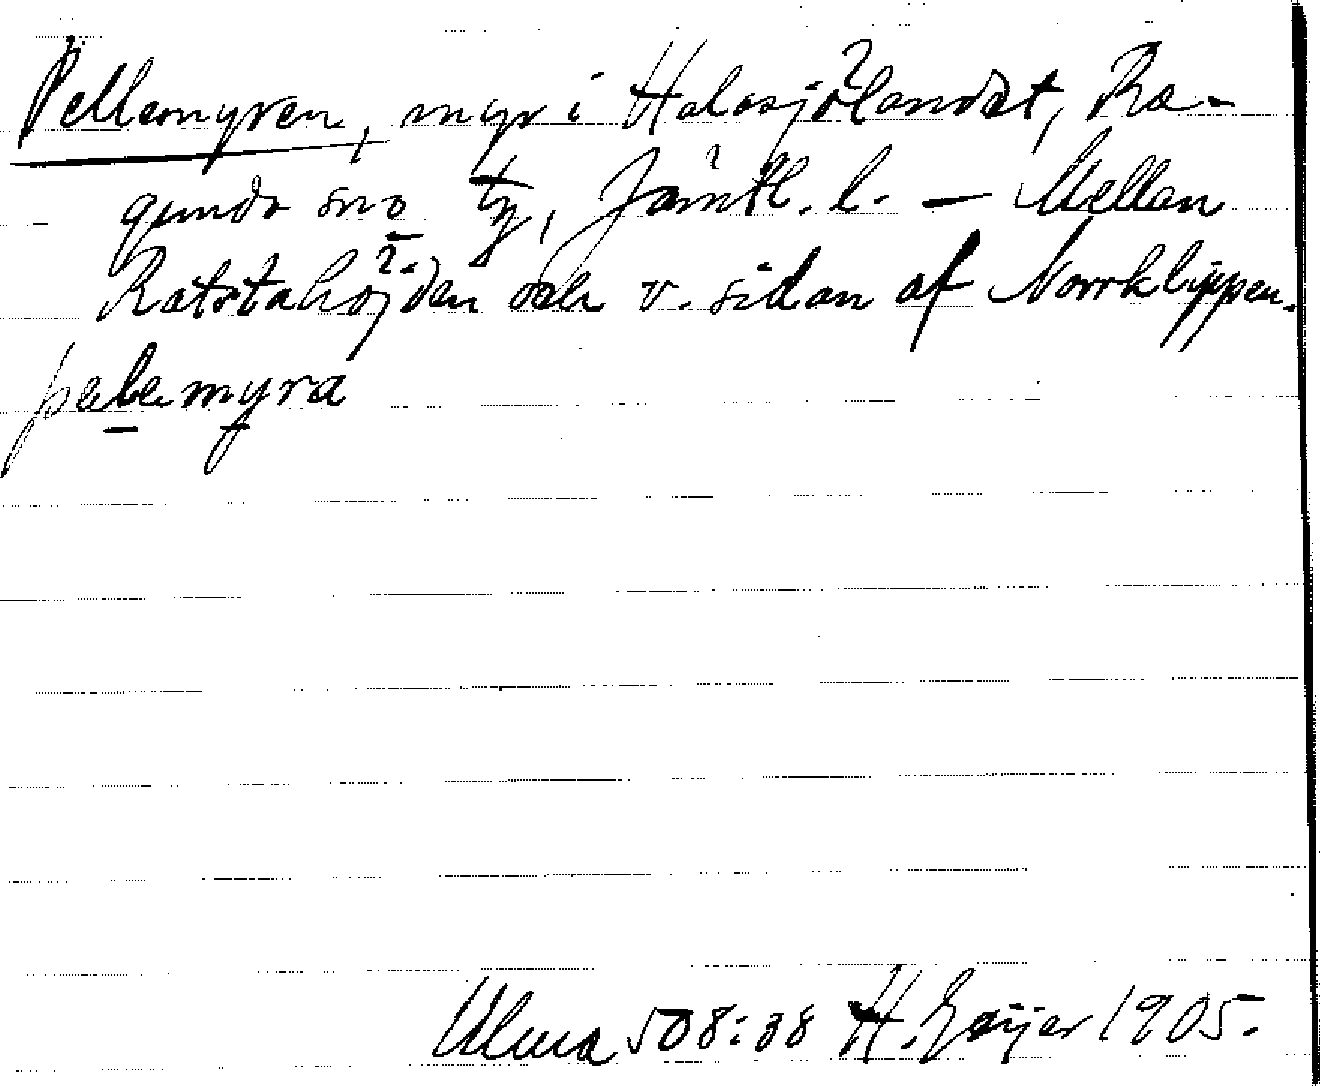 Pellemyren, myr i Halasjölandet, Ra-
gunda sno tg, Jämtl. l. — Mellan
Ratstahöjden och v. sidan af Norrklippen.
pelemyra
Ulma 508:38 H. Geijer 1905.